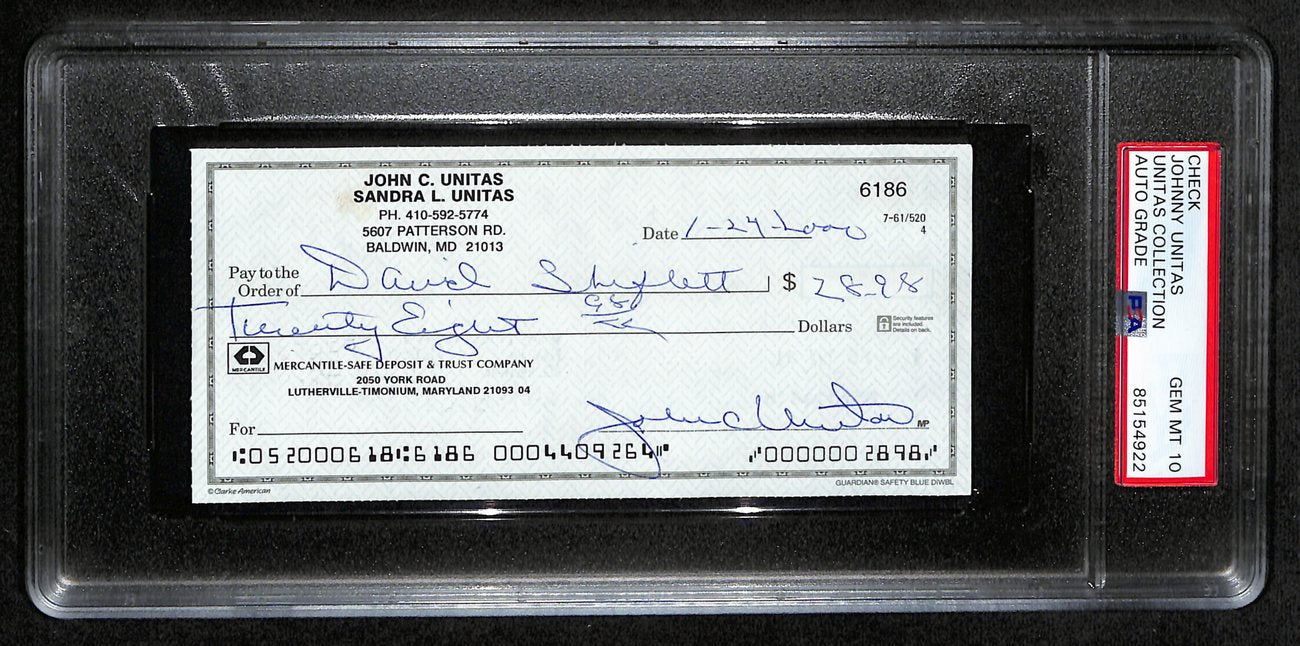 JOHN C. UNITAS
SANDRA L. UNITAS
PH. 410-592-5774
5607 PATTERSON RD.
BALDWIN, MD 21013
6186
7-61/520
4
Date 1-24-2000
Pay to the
Order of David Shiflett $ 28-98
Twenty Eight 98/ Dollars
Security features
are included.
Details on back.
MERCANTILE
MERCANTILE-SAFE DEPOSIT & TRUST COMPANY
2050 YORK ROAD
LUTHERVILLE-TIMONIUM, MARYLAND 21093 04
For
John C Unitas
MP
⑆052000618⑆6186 0004409264⑈ ⑈0000002898⑈
© Clarke American
GUARDIAN® SAFETY BLUE DIWBL
CHECK
JOHNNY UNITAS
UNITAS COLLECTION GEM MT 10
AUTO GRADE 85154922
PSA